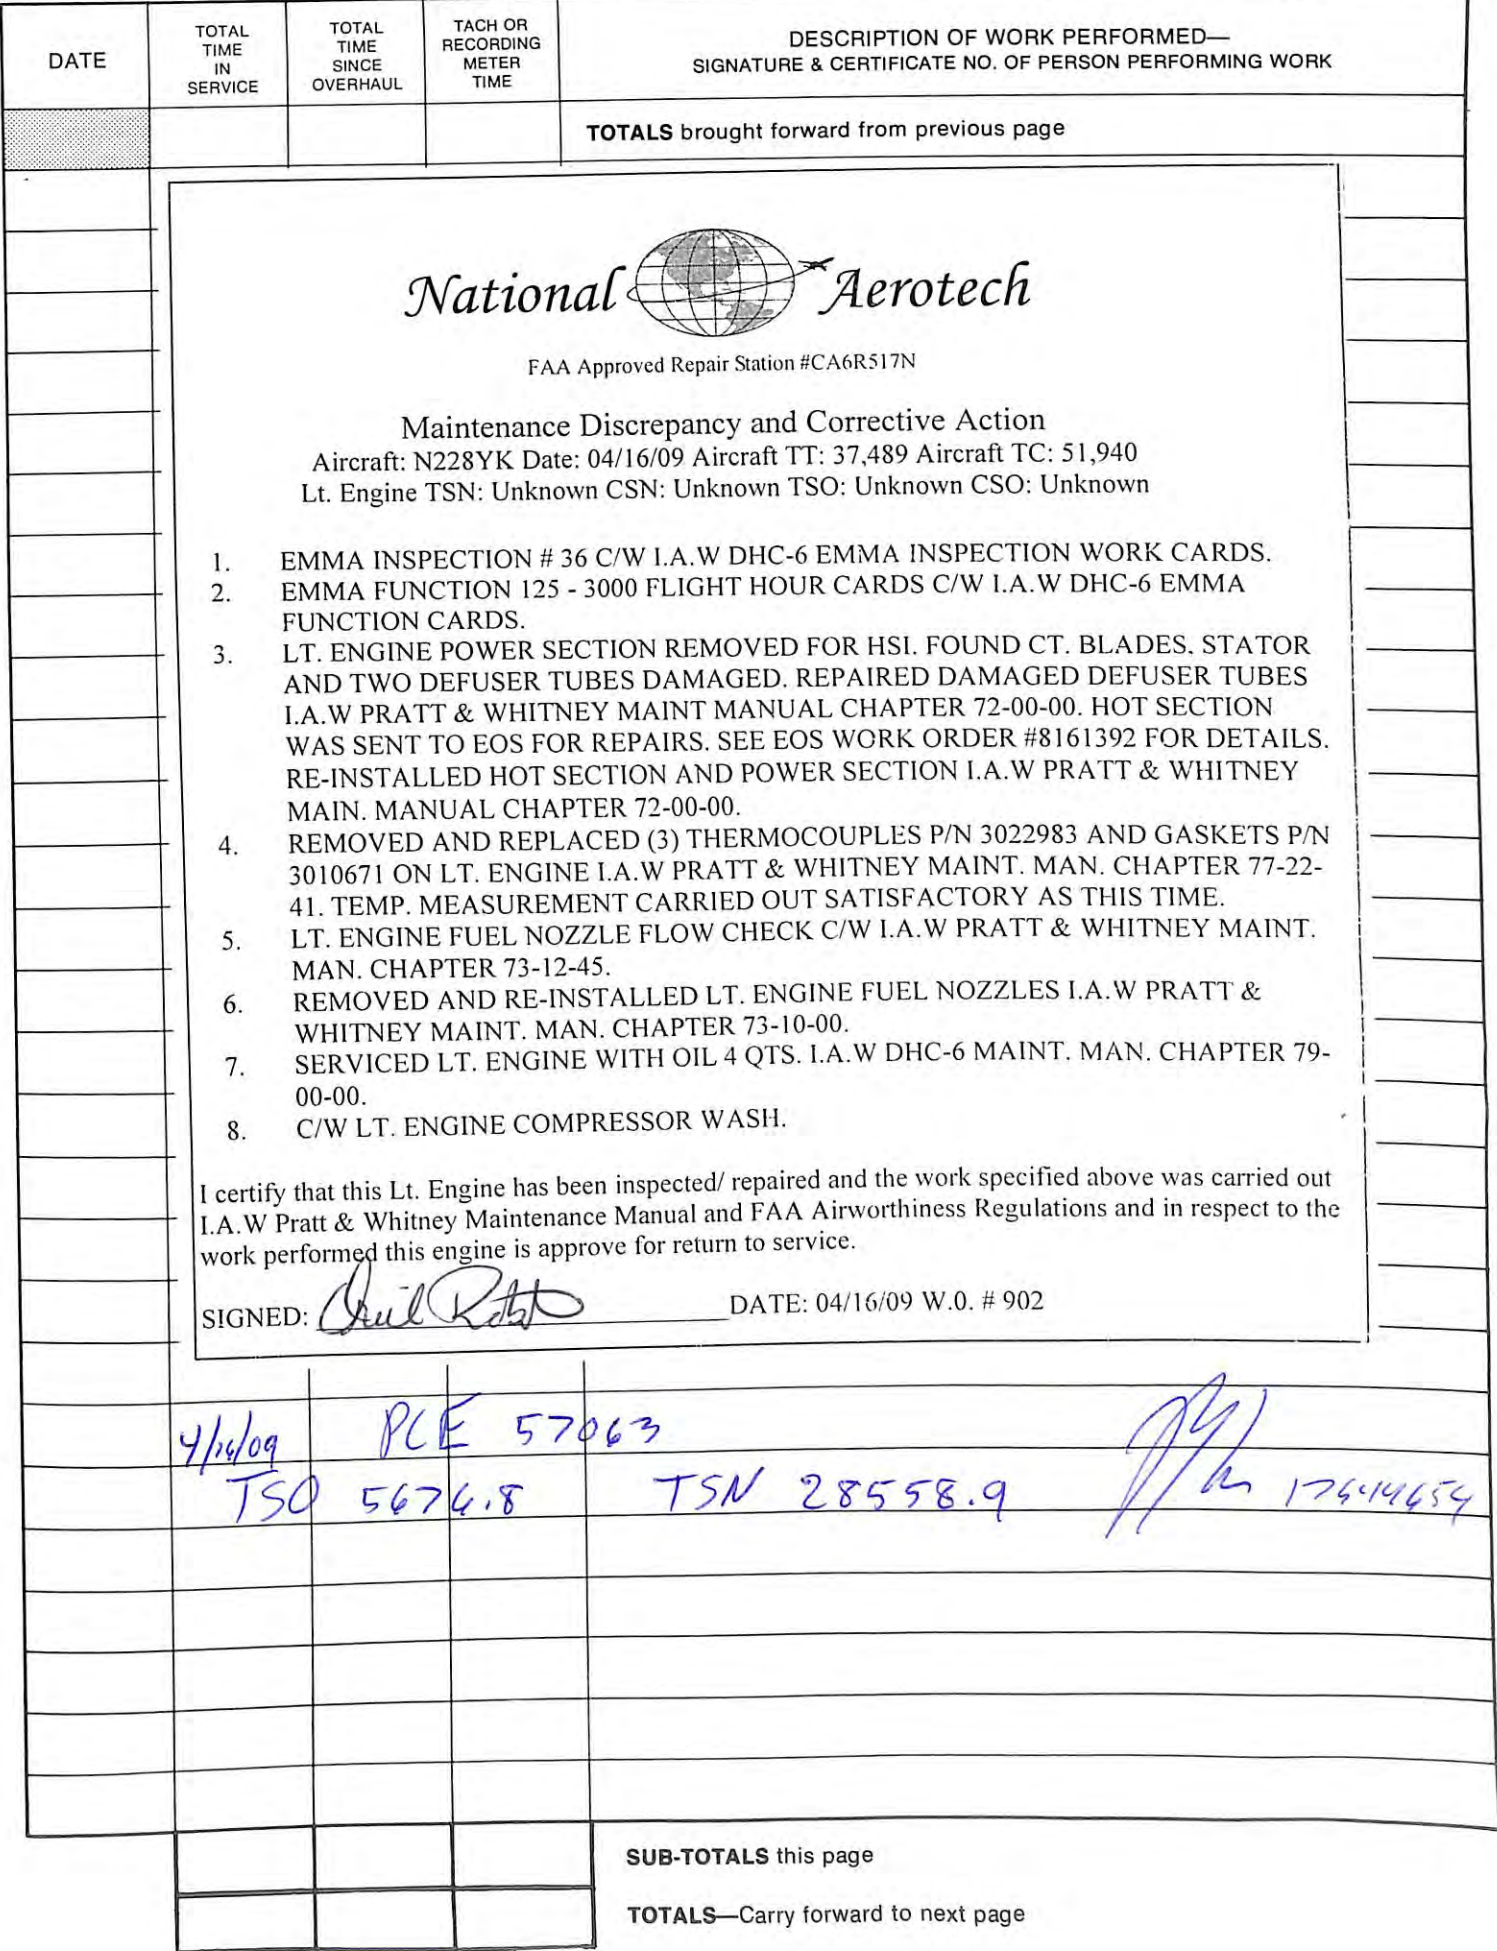 DATE
TOTAL TIME IN SERVICE
TOTAL TIME SINCE OVERHAUL
TACH OR RECORDING METER TIME
DESCRIPTION OF WORK PERFORMED—
SIGNATURE & CERTIFICATE NO. OF PERSON PERFORMING WORK
TOTALS brought forward from previous page
National Aerotech
FAA Approved Repair Station #CA6R517N
Maintenance Discrepancy and Corrective Action
Aircraft: N228YK Date: 04/16/09 Aircraft TT: 37,489 Aircraft TC: 51,940
Lt. Engine TSN: Unknown CSN: Unknown TSO: Unknown CSO: Unknown
1. EMMA INSPECTION # 36 C/W I.A.W DHC-6 EMMA INSPECTION WORK CARDS.
2. EMMA FUNCTION 125 - 3000 FLIGHT HOUR CARDS C/W I.A.W DHC-6 EMMA
FUNCTION CARDS.
3. LT. ENGINE POWER SECTION REMOVED FOR HSI. FOUND CT. BLADES. STATOR
AND TWO DEFUSER TUBES DAMAGED. REPAIRED DAMAGED DEFUSER TUBES
I.A.W PRATT & WHITNEY MAINT MANUAL CHAPTER 72-00-00. HOT SECTION
WAS SENT TO EOS FOR REPAIRS. SEE EOS WORK ORDER #8161392 FOR DETAILS.
RE-INSTALLED HOT SECTION AND POWER SECTION I.A.W PRATT & WHITNEY
MAIN. MANUAL CHAPTER 72-00-00.
4. REMOVED AND REPLACED (3) THERMOCOUPLES P/N 3022983 AND GASKETS P/N
3010671 ON LT. ENGINE I.A.W PRATT & WHITNEY MAINT. MAN. CHAPTER 77-22-
41. TEMP. MEASUREMENT CARRIED OUT SATISFACTORY AS THIS TIME.
5. LT. ENGINE FUEL NOZZLE FLOW CHECK C/W I.A.W PRATT & WHITNEY MAINT.
MAN. CHAPTER 73-12-45.
6. REMOVED AND RE-INSTALLED LT. ENGINE FUEL NOZZLES I.A.W PRATT &
WHITNEY MAINT. MAN. CHAPTER 73-10-00.
7. SERVICED LT. ENGINE WITH OIL 4 QTS. I.A.W DHC-6 MAINT. MAN. CHAPTER 79-
00-00.
8. C/W LT. ENGINE COMPRESSOR WASH.
I certify that this Lt. Engine has been inspected/ repaired and the work specified above was carried out
I.A.W Pratt & Whitney Maintenance Manual and FAA Airworthiness Regulations and in respect to the
work performed this engine is approve for return to service.
SIGNED: DATE: 04/16/09 W.O. # 902
4/16/09 PCE 57063
TSO 5676.8 TSN 28558.9
SUB-TOTALS this page
TOTALS—Carry forward to next page